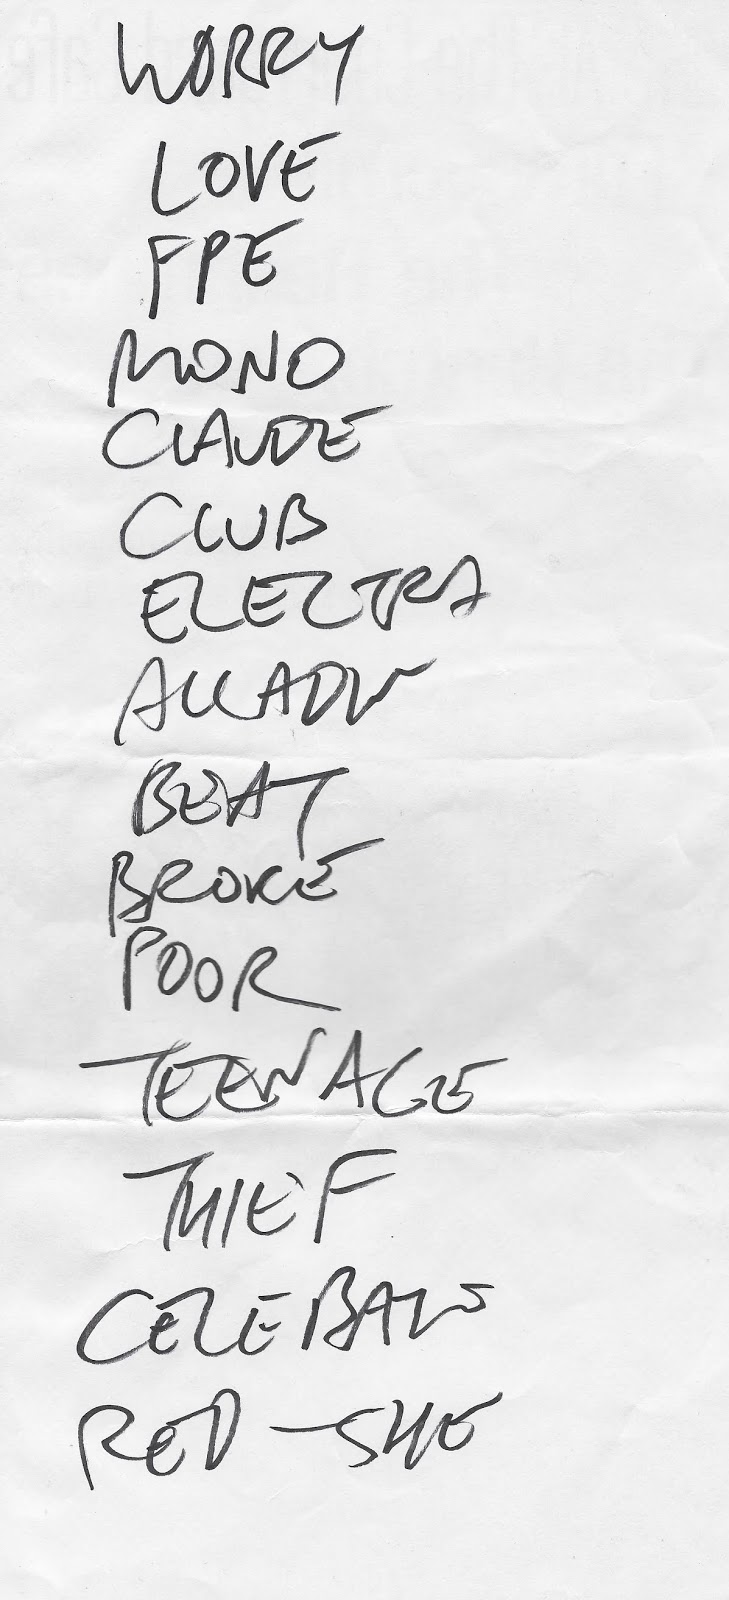 WORRY
LOVE
FPE
MONO
CLAUDE
CLUB
ELECTRA
ALLADIN
BEAT
BROKE
POOR
TEENAGE
THIEF
RED - SHE